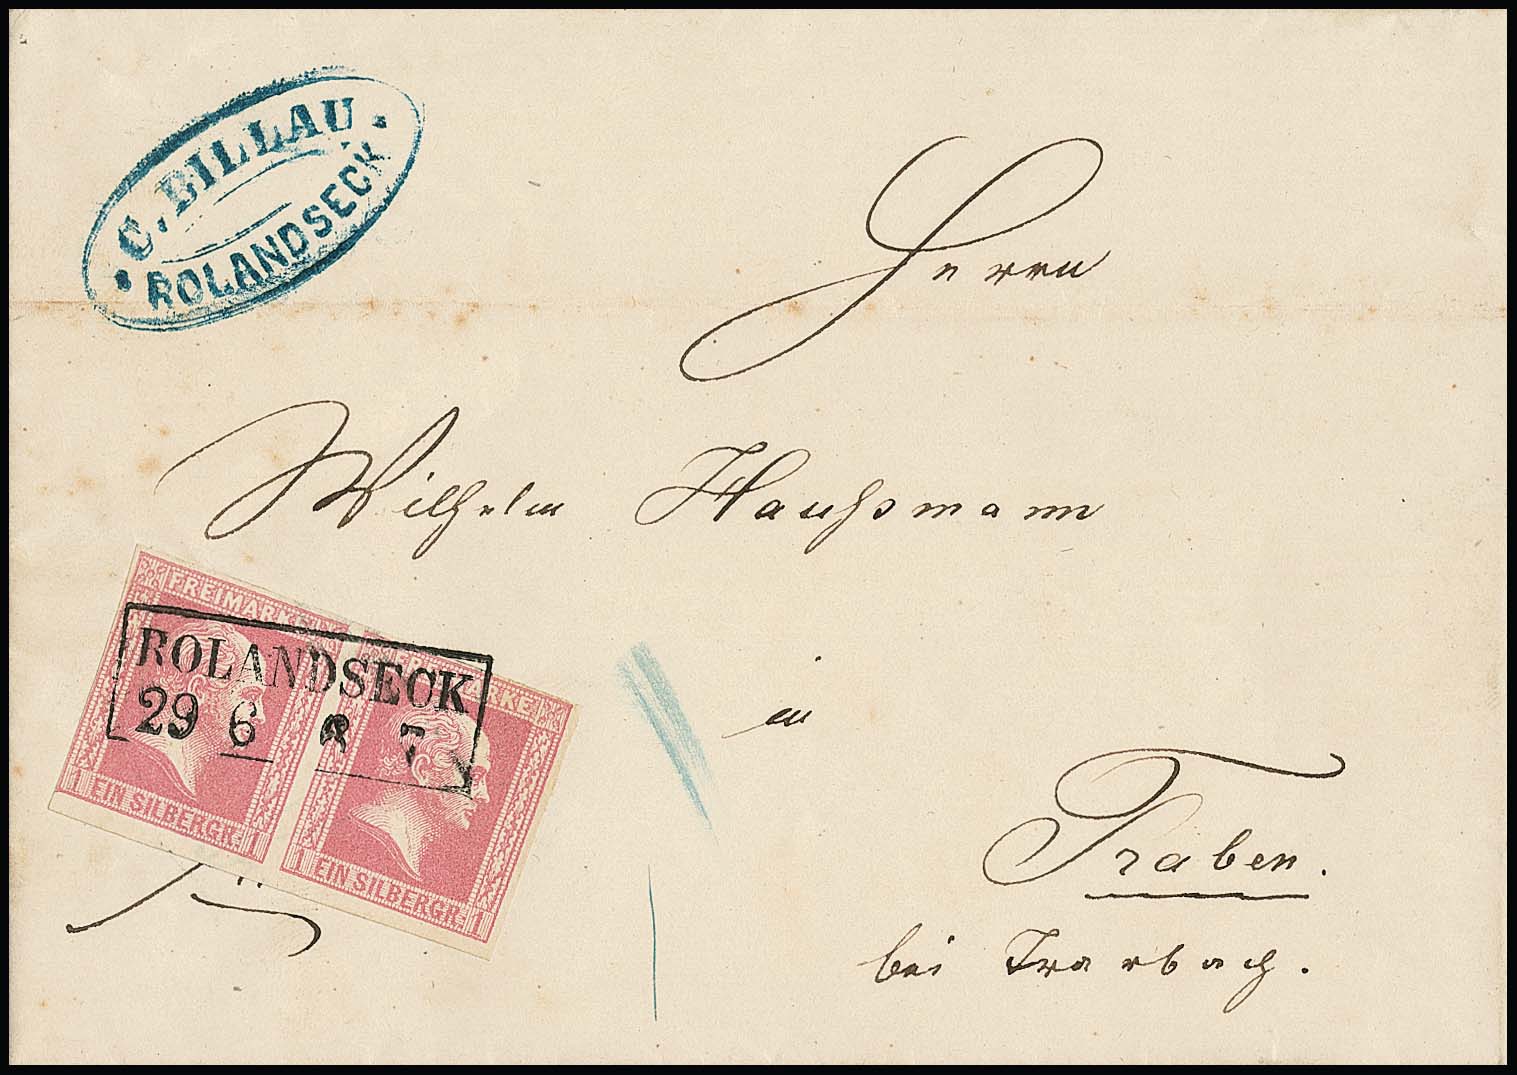 C. BILLAU
ROLANDSECK
Herrn
Wilhelm Haußmann
in
Traben.
bei Trarbach.
FREIMARKE
FREIMARKE
ROLANDSECK
29 6 * 7
1 EIN SILBERGR. 1
1 EIN SILBERGR. 1